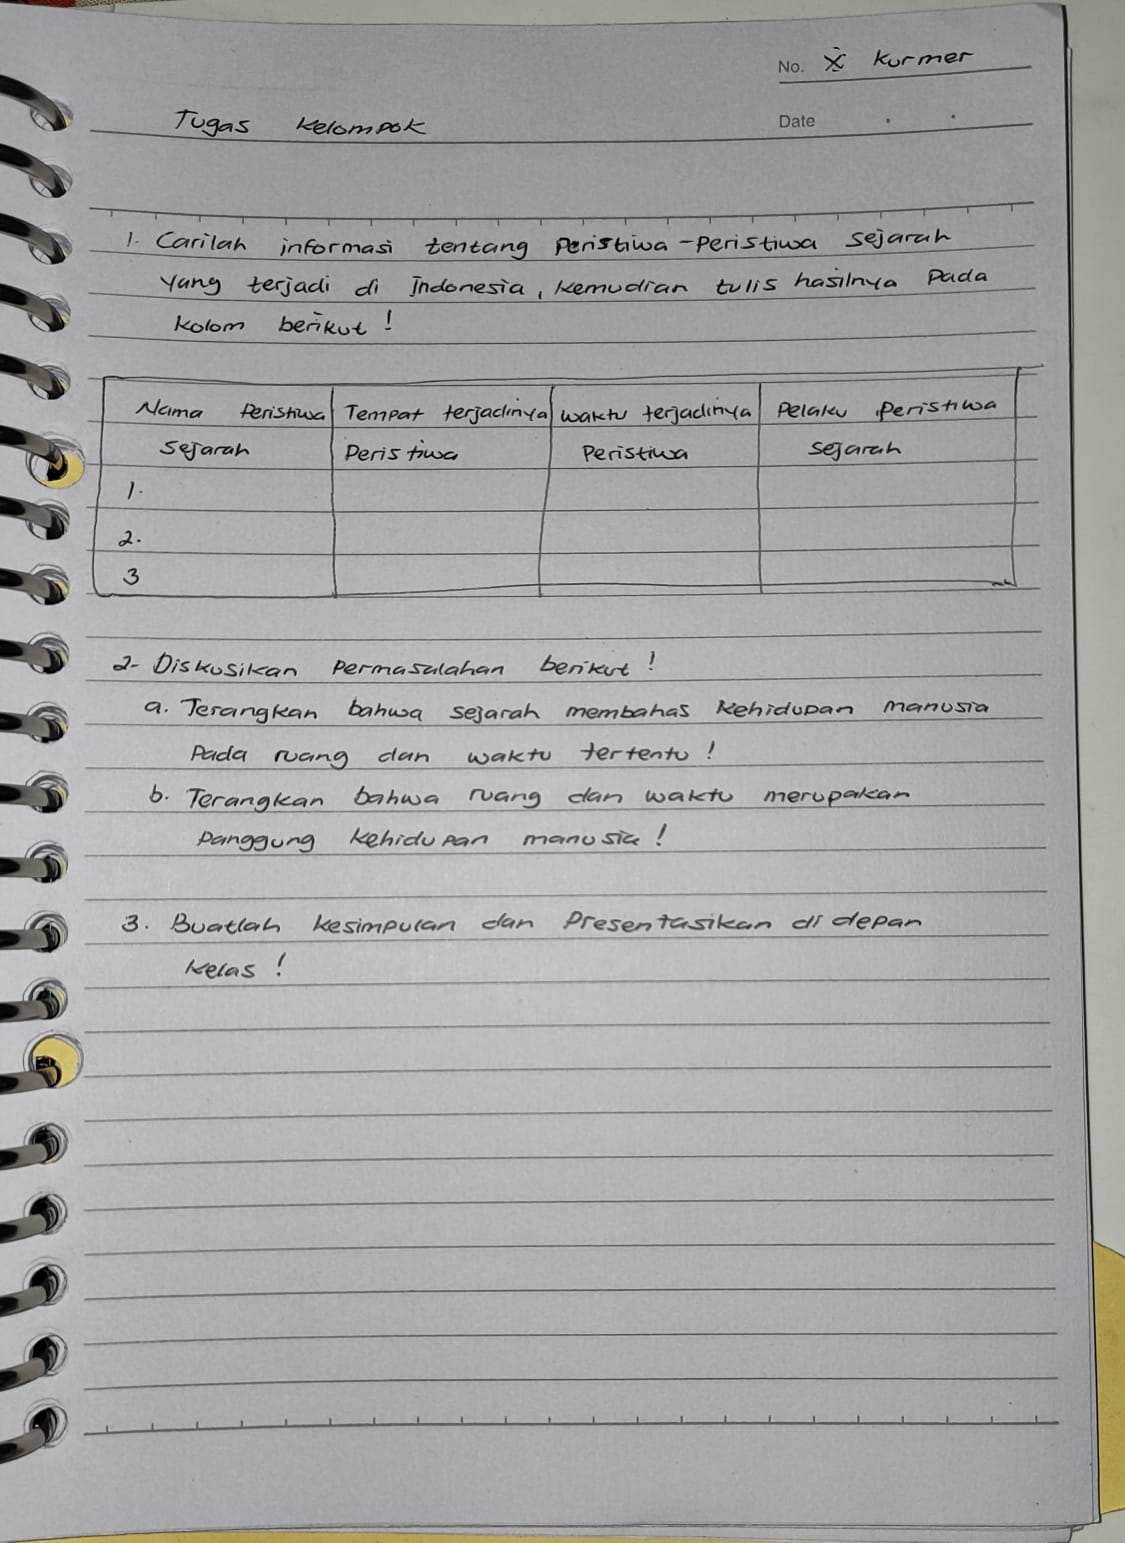 No. X Kurmer
Tugas Kelompok
Date
1. Carilah informasi tentang Peristiwa-Peristiwa Sejarah
Yang terjadi di Indonesia, kemudian tulis hasilnya Pada
Kolom berikut!
Nama Peristiwa Sejarah
Tempat terjadinya Peristiwa
Waktu terjadinya Peristiwa
Pelaku Peristiwa Sejarah
1.
2.
3
2- Diskusikan Permasalahan berikut!
a. Terangkan bahwa sejarah membahas kehidupan manusia
Pada ruang dan waktu tertentu!
b. Terangkan bahwa ruang dan waktu merupakan
Panggung kehidupan manusia!
3. Buatlah kesimpulan dan Presentasikan di depan
kelas!